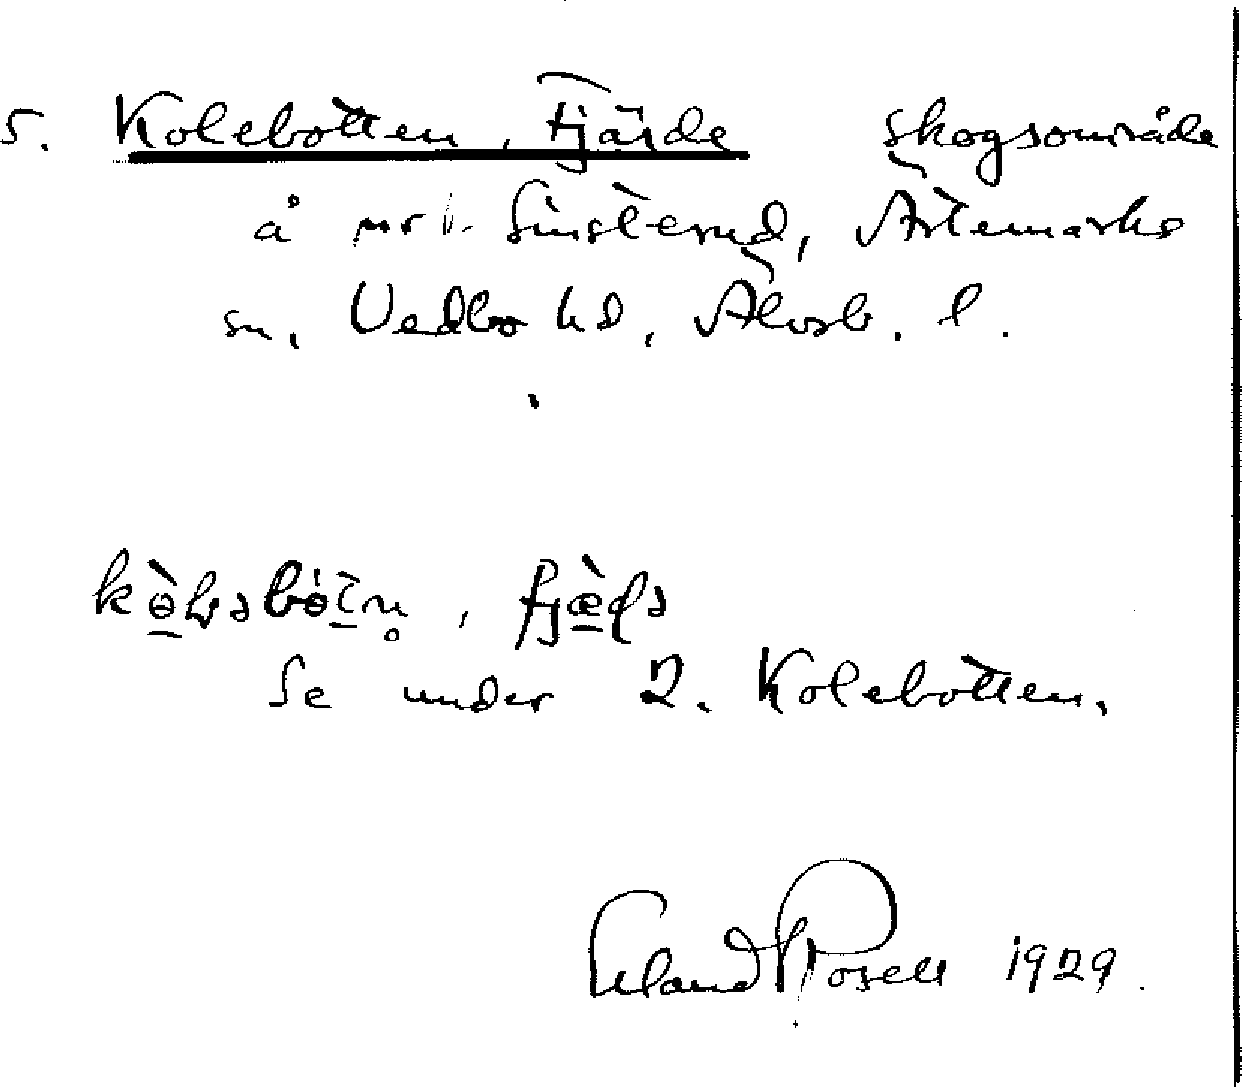 5. Kolebotten, Fjärde skogsområde
å nr 1. Sinsterud, Ärtemarks
sn, Vedbo hd, Älvsb. l.
Se under 2. Kolebotten.
Erland Rosell 1929.